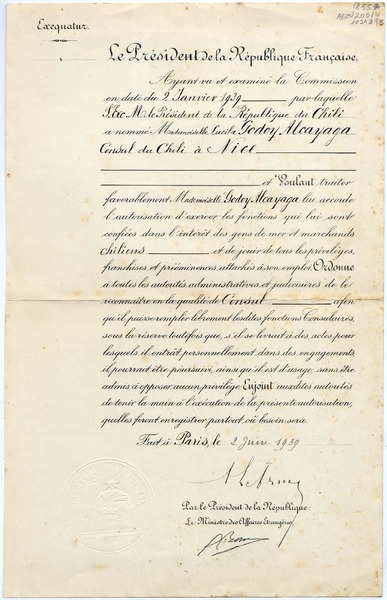 Exequatur.
Le Président de la République Française.
Ayant vu et examiné la Commission
en date du 2 Janvier 1939 par laquelle
S. Exc. M. le Président de la République du Chili
a nommé Mademoiselle Lucila Godoy Alcayaga
Consul du Chili à Nice
et Voulant traiter
favorablement Mademoiselle Godoy Alcayaga lui accorde
l'autorisation d'exercer les fonctions qui lui sont
confiées dans l'intérêt des gens de mer et marchands
chiliens et de jouir de tous les privilèges,
franchises et prééminences attachés à son emploi, Ordonne
à toutes les autorités administratives et judiciaires de le
reconnaître en la qualité de Consul afin
qu'il puisse remplir librement lesdites fonctions Consulaires,
sous la réserve toutefois que, s'il se livrait à des actes pour
lesquels il entrât personnellement dans des engagements,
il pourrait être poursuivi, ainsi qu'il est d'usage, sans être
admis à opposer aucun privilège. Enjoint auxdites autorités
de tenir la main à l'exécution de la présente autorisation,
qu'elles feront enregistrer partout où besoin sera.
Fait à Paris, le 2 Juin 1939
Par le Président de la République:
Le Ministre des Affaires Etrangères